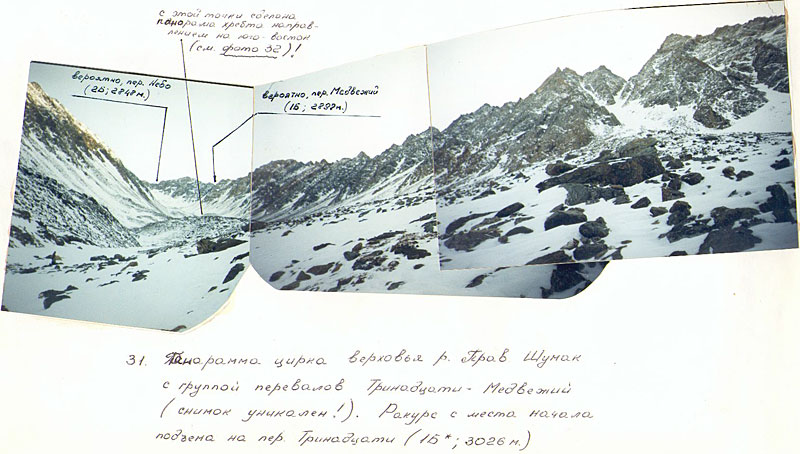 с этой точки сделана
панорама хребта направ-
лением на юго-восток
(см. фото 32)!
вероятно, пер. Небо
(2Б; 2848м.)
вероятно, пер. Медвежий
(1Б; 2892м.)
31. Панорамма цирка верховья р. Прав Шумак
с группой перевалов Тринадцати - Медвежий
(снимок уникален!). Ракурс с места начала
подъема на пер. Тринадцати (1Б*; 3026м.)